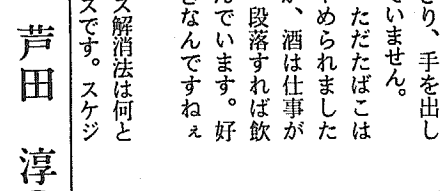 り、手を出し
ていません。
ただたばこは
められました
、酒は仕事が
段落すれば飲
んでいます。好
なんですねぇ
ス解消法は何と
スです。スケジ
芦田　淳